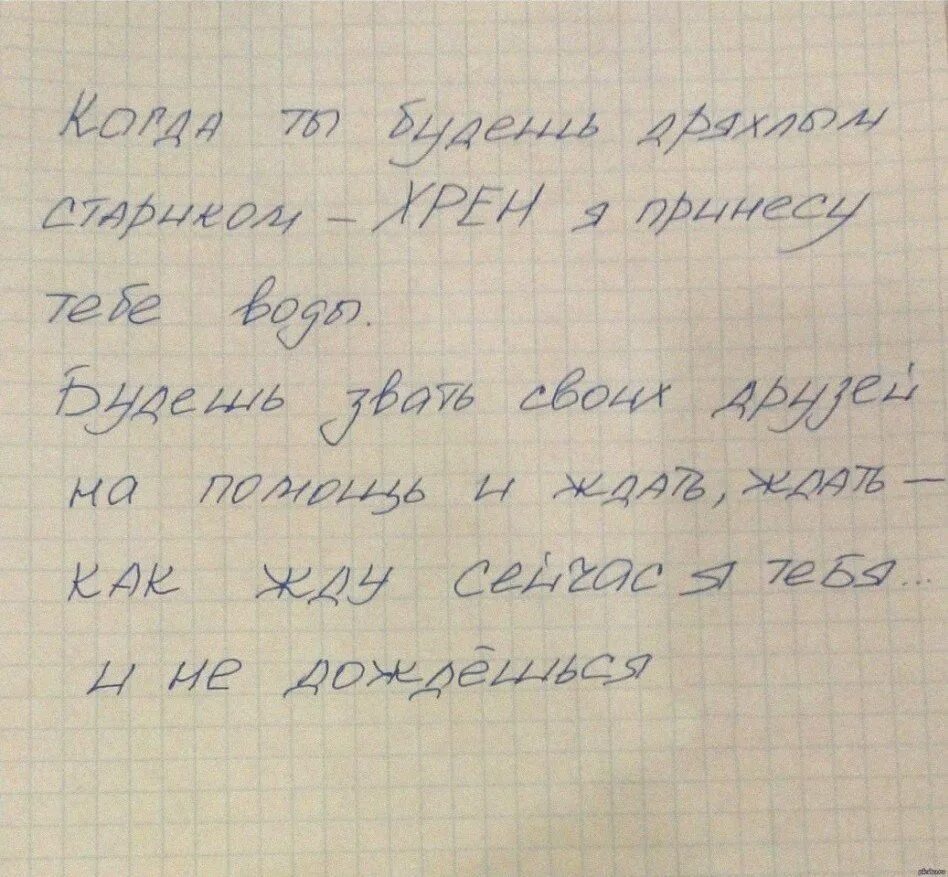 Когда ты будешь дряхлым
стариком – ХРЕН я принесу
тебе воды.
Будешь звать своих друзей
на помощь и ждать, ждать –
как жду сейчас я тебя...
и не дождёшься